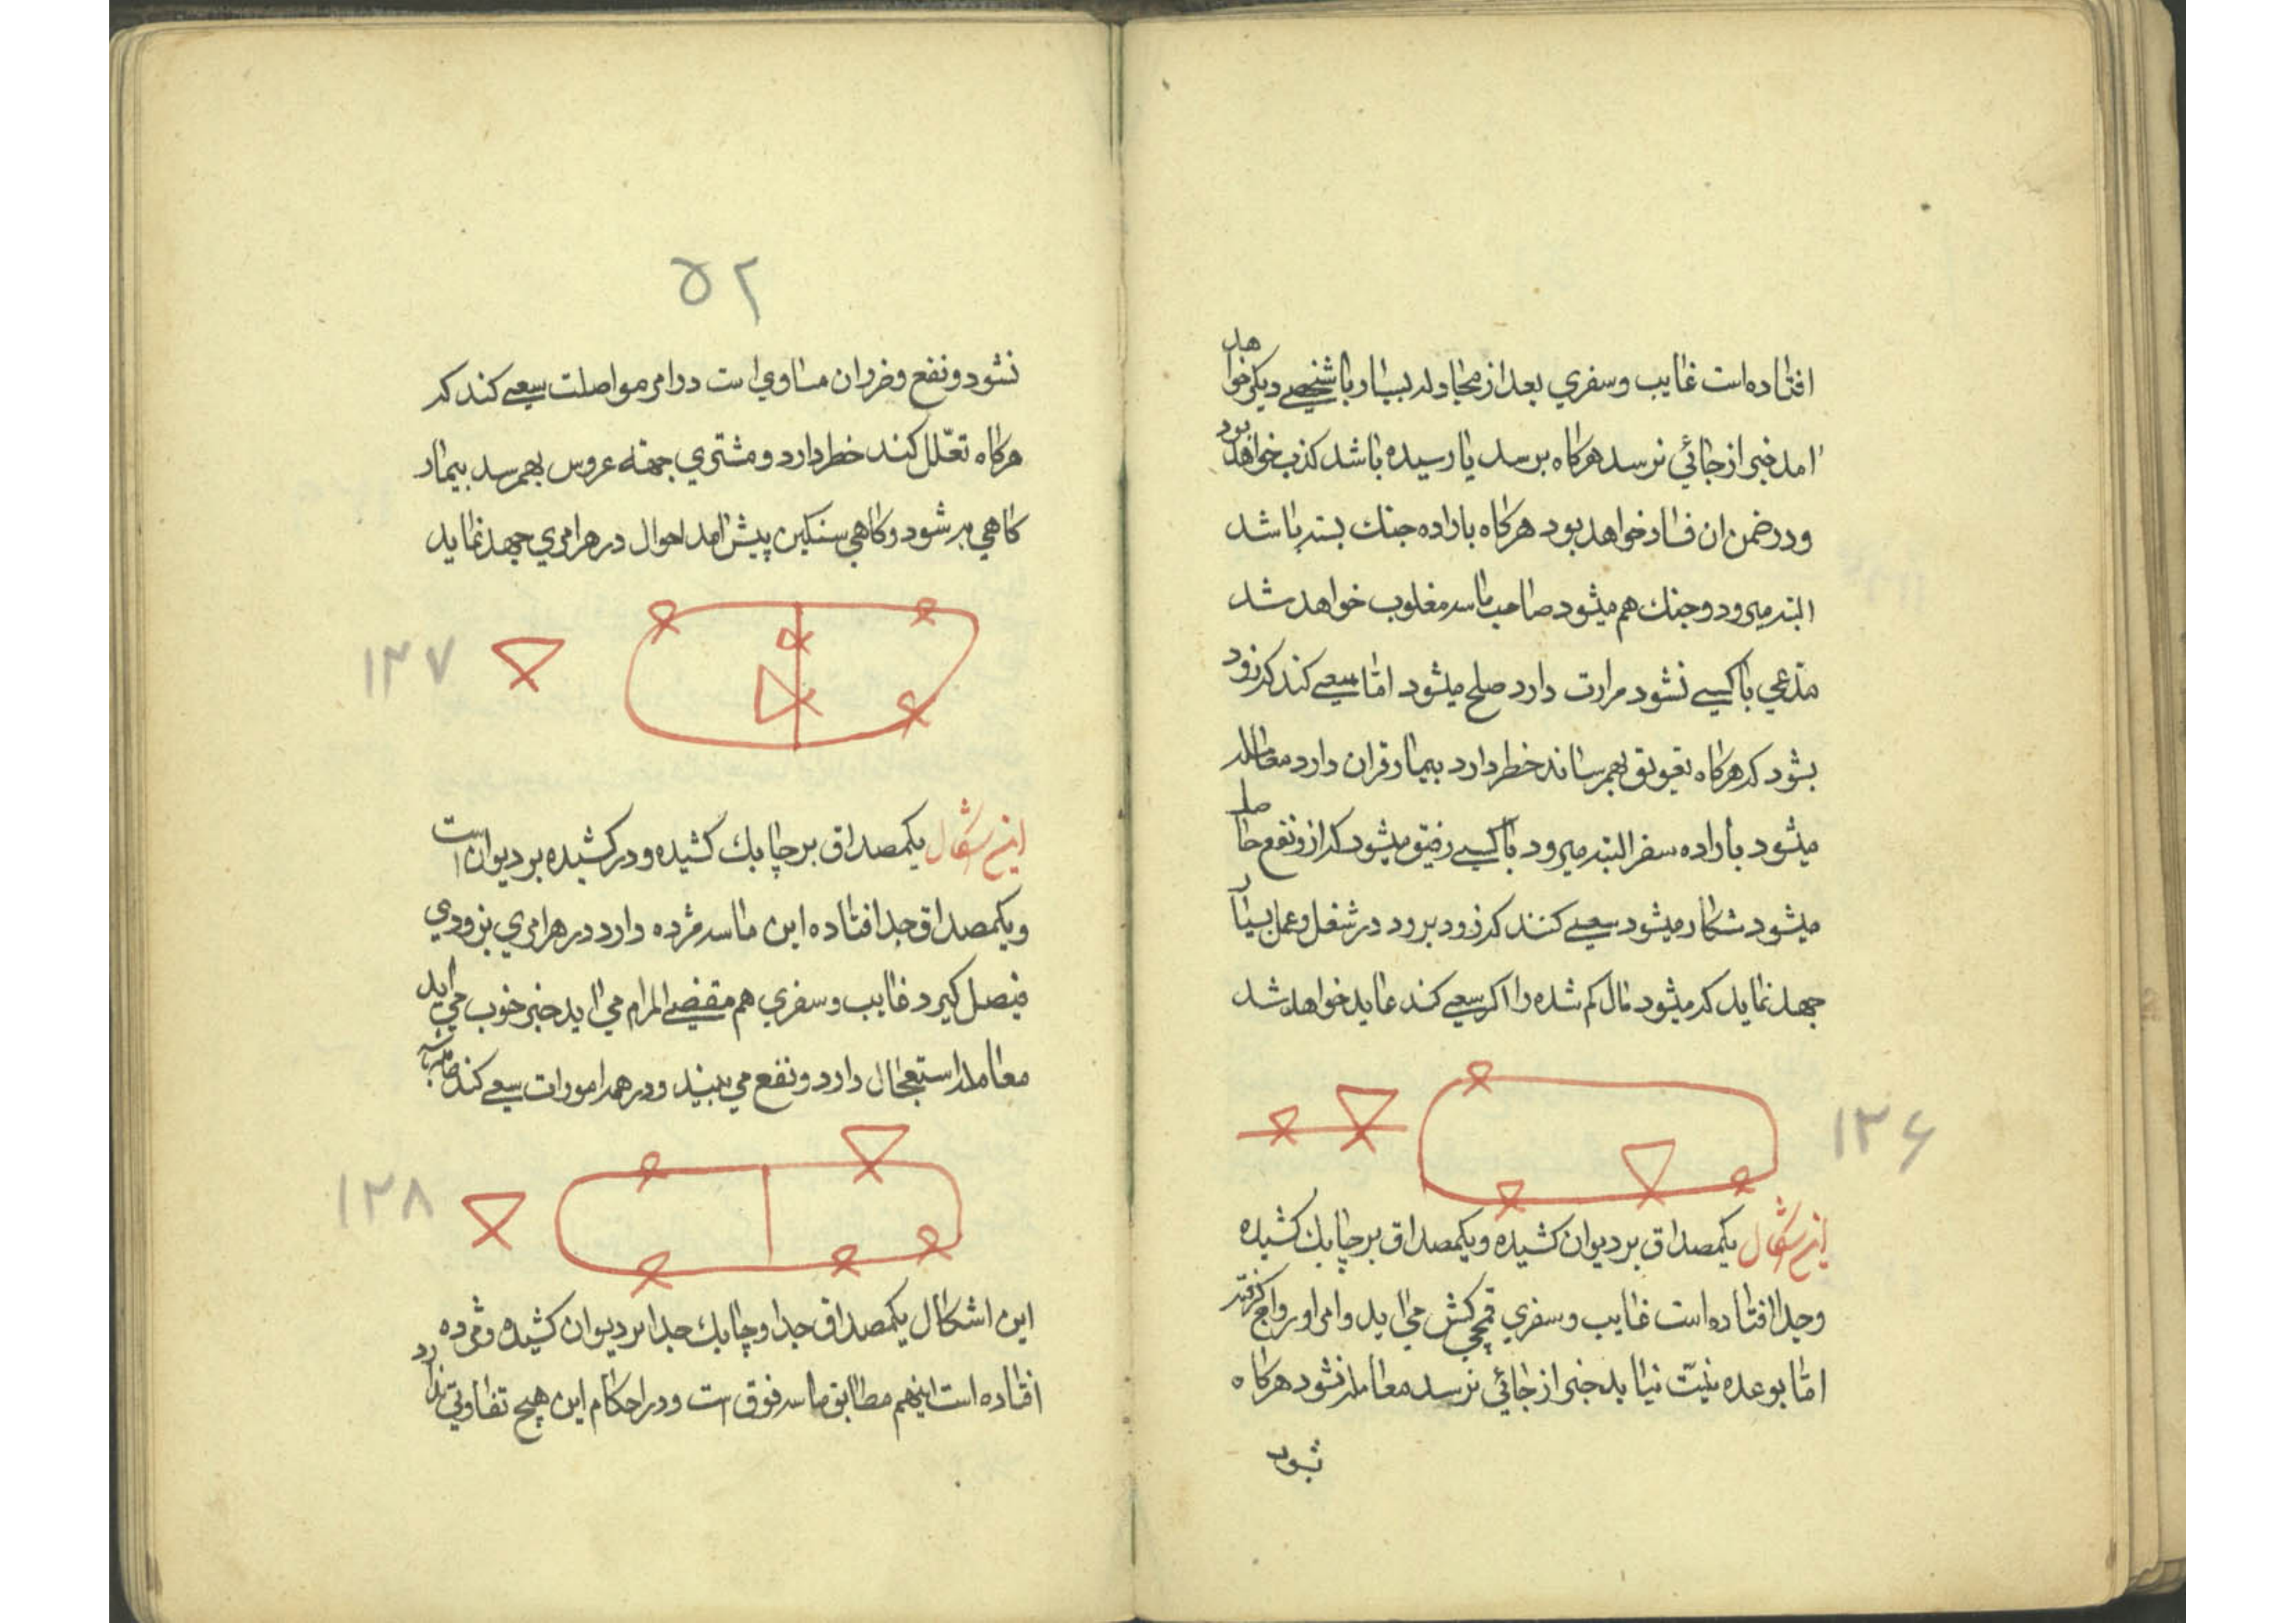 افتاده‌است غایب و سفری بعد از مجادله بسیار با شخصی دیکر خواهد
امد خبر از جائی نرسد هرکاه برسد یا رسیده باشد کذب خواهد بود
و در ضمن ان فساد خواهد بود هرکاه باراده جنك بسته باشد
البته میرود و جنك هم میشود صاحب ماسه مغلوب خواهد شد
مدّعی با کسی نشود مرارت دارد صلح میشود امّا سعی کند که زود
بشود که هرکاه تعویق بهمرساند خطر دارد بیمار قران دارد معامله
میشود باراده سفر البته میرود با کسی رفیق میشود که از او نفع حاصل
میشود شکار میشود سعی کنند که زود برود در شغل و عمل بسیار
جهد نماید که میشود مال کم شده را اکر سعی کند عاید خواهد شد
۱۳۶
این اشکال یکمصداق بر دیوان کشیده و یکمصداق بر چابك کشیده
و جدا افتاده است غایب و سفری قمچی کش می اید و امر او رواج کرفته
امّا بوعده نیّت نیاید خبر از جائی نرسد معامله نشود هرکاه
شود
۵۲
نشود و نفع و ضرر ان مساوی است در امر مواصلت سعی کند که
هرکاه تعلّل کند خطر دارد و مشتری جهته عروس بهمرسد بیمار
کاهی بر شود و کاهی سنکین پیش امد احوال در هر امری جهد نماید
۱۳۷
این اشکال یکمصداق بر چابك کشیده و در کشیده بر دیوان است
و یکمصداق جدا افتاده این ماسه مژده دارد در هر امری بزودی
فیصل کیرد غایب و سفری هم مقضی المرام می اید خبر خوب می اید
معامله استعجال دارد و نفع می بیند و در همه امورات سعی کند
۱۳۸
این اشکال یکمصداق جدا و چابك جدا بر دیوان کشیده و مژده
افتاده است اینهم مطابق ماسه فوق است و در احکام این هیچ تفاوتی ندارد